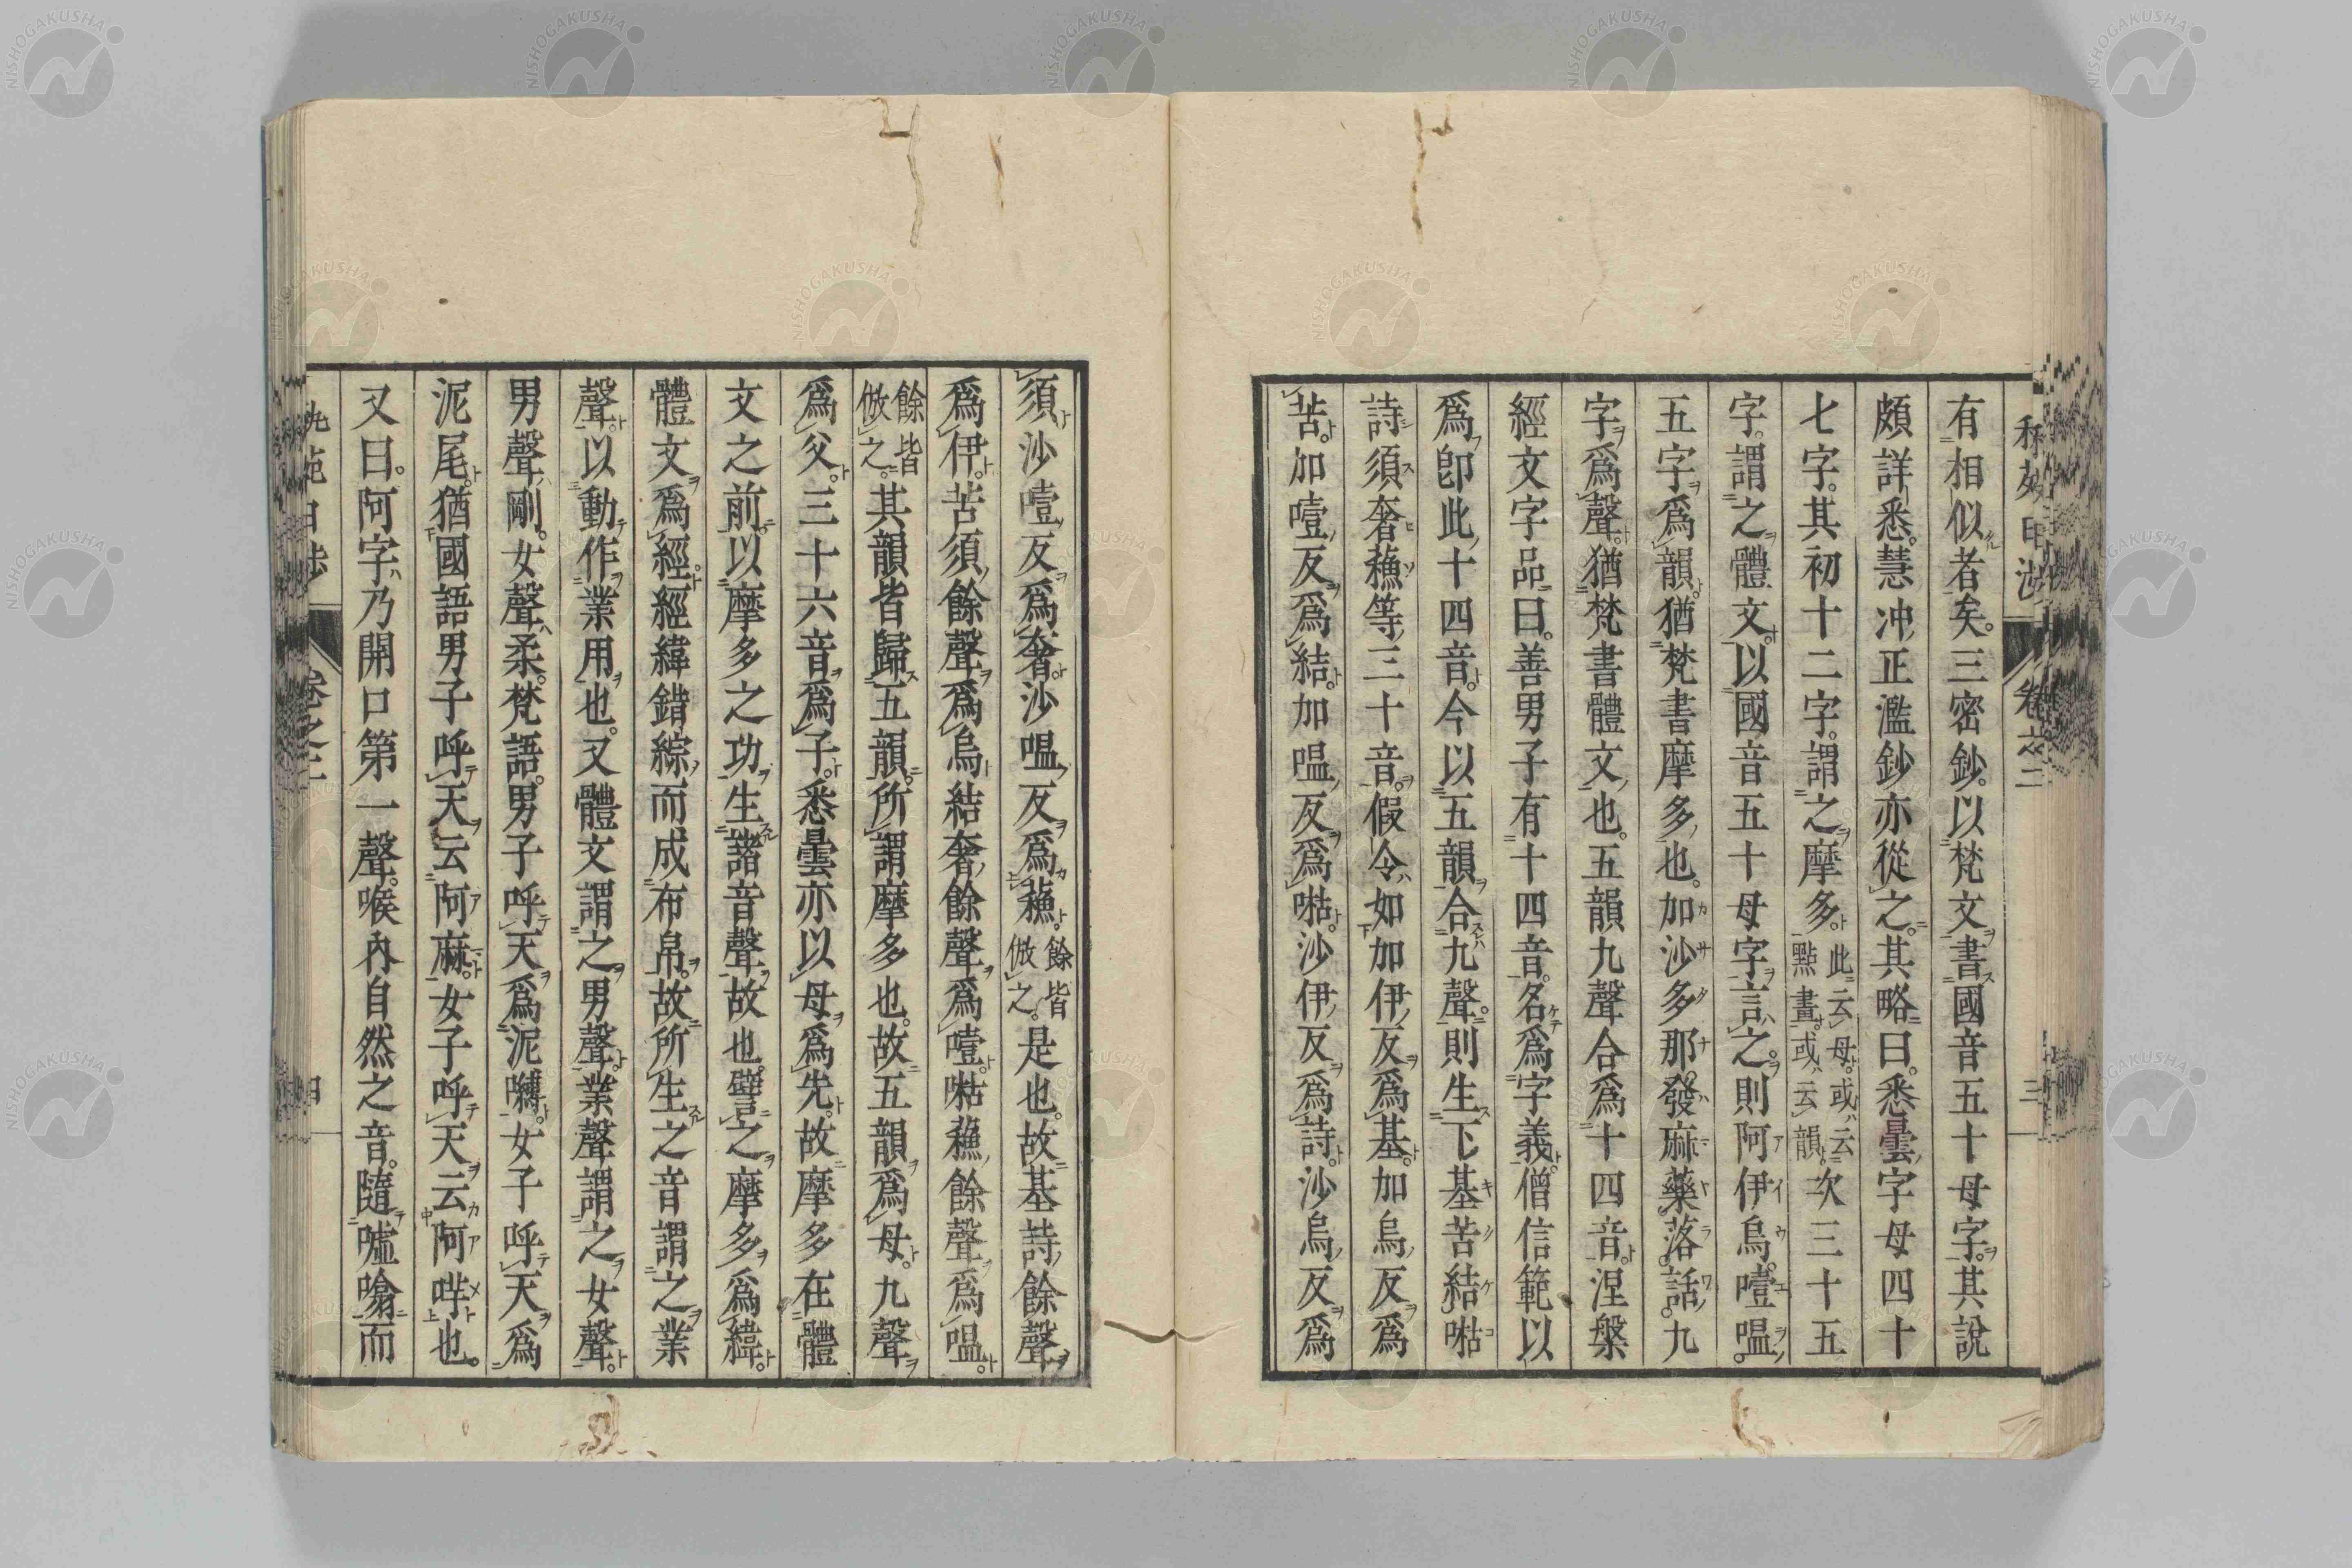 有相似者矣。三密鈔。以梵文書國音五十母字。其說
頗詳悉。慧冲正濫鈔亦從之。其略曰。悉曇字母四十
七字。其初十二字。謂之摩多。此云母。或云點畫。或云韻。次三十五
字。謂之體文。以國音五十母字言之。則阿伊烏噎嗢。
五字為韻。猶梵書摩多也。加沙多那發麻藥落話。九
字為聲。猶梵書體文也。五韻九聲合為十四音。涅槃
經文字品曰。善男子有十四音。名為字義。僧信範以
為卽此十四音。今以五韻合九聲。則生下基苦結𠴩
詩須奢蘓等三十音。假令如加伊反為基。加烏反為
苦。加噎反為結。加嗢反為𠴩。沙伊反為詩。沙烏反為
須沙噎反為奢。沙嗢反為蘓。餘皆倣之。是也。故基詩餘聲
為伊。苦須餘聲為烏結奢餘聲為噎。𠴩蘓餘聲為嗢。
餘皆倣之。其韻皆歸五韻。所謂摩多也。故五韻為母。九聲
為父。三十六音為子。悉曇亦以母為先。故摩多在體
文之前。以摩多之功生諸音聲故也。譬之摩多為緯。
體文為經。經緯錯綜而成布帛。故所生之音謂之業
聲。以動作業用也。又體文謂之男聲。業聲謂之女聲。
男聲剛。女聲柔。梵語。男子呼天為泥嚩。女子呼天為
泥尾。猶國語男子呼天云阿麻。女子呼天云阿哶也。
又曰。阿字乃開口第一聲。喉內自然之音。隨噓噏而
卷之二
三
NISHOGAKUSHA